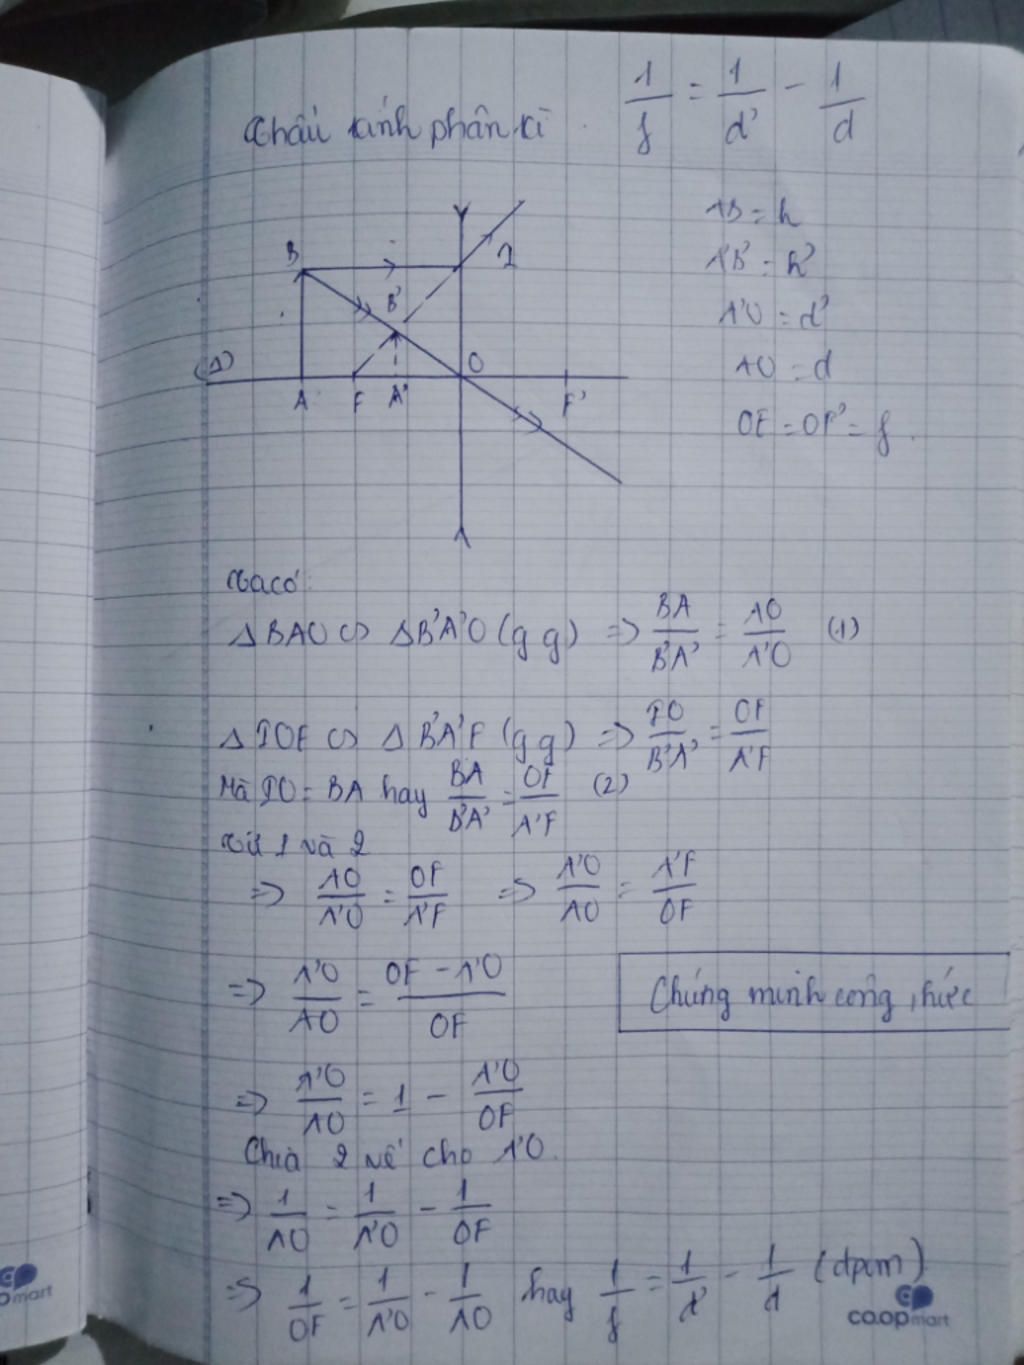 Thấu kính phân kì 1/f = 1/d' - 1/d
AB = h
A'B' = h'
A'O = d'
AO = d
OF = OF' = f
B
I
B'
(Δ)
O
A
F
A'
F'
Ta có:
Δ BAO ∽ Δ B'A'O (g g) => BA/B'A' = AO/A'O (1)
Δ IOF ∽ Δ B'A'F (g g) => IO/B'A' = OF/A'F
Mà IO = BA hay BA/B'A' = OF/A'F (2)
Từ 1 và 2
=> AO/A'O = OF/A'F => A'O/AO = A'F/OF
=> A'O/AO = OF - A'O/OF
Chứng minh công thức
=> A'O/AO = 1 - A'O/OF
Chia 2 vế cho A'O.
=> 1/AO = 1/A'O - 1/OF
=> 1/OF = 1/A'O - 1/AO hay 1/f = 1/d' - 1/d (đpcm)
co.opmart
mart